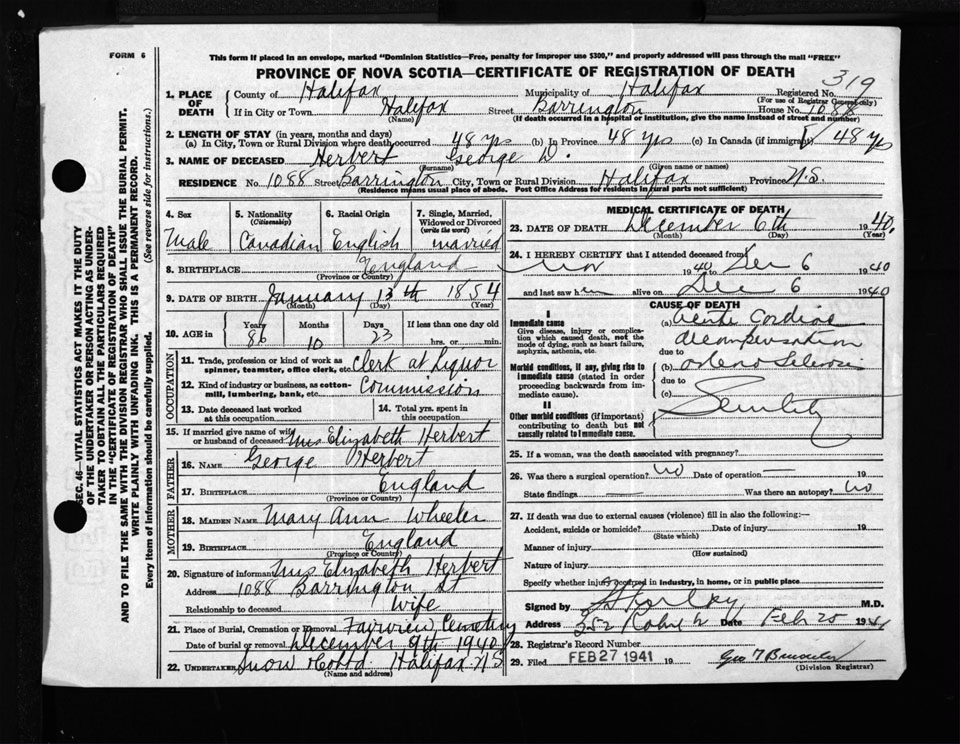 FORM 6
This form if placed in an envelope, marked "Dominion Statistics—Free, penalty for improper use $300," and properly addressed will pass through the mail "FREE"
PROVINCE OF NOVA SCOTIA—CERTIFICATE OF REGISTRATION OF DEATH
319
1. PLACE OF DEATH County of Halifax Municipality of Halifax Registered No.
(For use of Registrar General only)
If in City or Town Halifax Street Barrington House No. 1088
(Name) (If death occurred in a hospital or institution, give the name instead of street and number)
2. LENGTH OF STAY (in years, months and days)
(a) In City, Town or Rural Division where death occurred 48 yrs (b) In Province 48 yrs (c) In Canada (if immigrant) 48 yrs
3. NAME OF DECEASED Herbert George D.
(Surname) (Given name or names)
RESIDENCE No. 1088 Street Barrington City, Town or Rural Division Halifax Province N.S.
(Residence means usual place of abode. Post Office Address for residents in rural parts not sufficient)
4. Sex Male
5. Nationality (Citizenship) Canadian
6. Racial Origin English
7. Single, Married, Widowed or Divorced (write the word) married
8. BIRTHPLACE England
(Province or Country)
9. DATE OF BIRTH January 13th 1854
(Month) (Day) (Year)
10. AGE in Years 86 Months 10 Days 23 If less than one day old
hrs. or min.
OCCUPATION
11. Trade, profession or kind of work as spinner, teamster, office clerk, etc. Clerk at Liquor
12. Kind of industry or business, as cotton-mill, lumbering, bank, etc. Commission
13. Date deceased last worked at this occupation
14. Total yrs. spent in this occupation
15. If married give name of wife or husband of deceased Mrs Elizabeth Herbert
FATHER
16. NAME George Herbert
17. BIRTHPLACE England
(Province or Country)
MOTHER
18. MAIDEN NAME Mary Ann Wheeler
19. BIRTHPLACE England
(Province or Country)
20. Signature of informant Mrs Elizabeth Herbert
Address 1088 Barrington St
Relationship to deceased Wife
21. Place of Burial, Cremation or Removal Fairview Cemetery
Date of burial or removal December 9th 1940
22. UNDERTAKER Snow & Co Ltd Halifax N.S.
(Name and address)
MEDICAL CERTIFICATE OF DEATH
23. DATE OF DEATH December 6th 1940.
(Month) (Day) (Year)
24. I HEREBY CERTIFY that I attended deceased from
Nov 1940 to Dec 6 1940
and last saw h alive on Dec 6 1940
CAUSE OF DEATH
I
Immediate cause
Give disease, injury or complication which caused death, not the mode of dying, such as heart failure, asphyxia, asthenia, etc.
(a) Acute Cardiac
decompensation
due to
Morbid conditions, if any, giving rise to immediate cause (stated in order proceeding backwards from immediate cause).
(b)
due to
(c)
II
Other morbid conditions (if important) contributing to death but not causally related to immediate cause.
Senility
25. If a woman, was the death associated with pregnancy?
26. Was there a surgical operation? No Date of operation —
State findings — Was there an autopsy? No
27. If death was due to external causes (violence) fill in also the following:—
Accident, suicide or homicide? Date of injury 19
(State which)
Manner of injury
(How sustained)
Nature of injury
Specify whether injury occurred in industry, in home, or in public place
Signed by M.D.
Address 352 Date Feb 25 1941
28. Registrar's Record Number
29. Filed FEB 27 1941 19
(Division Registrar)
SEC. 46—VITAL STATISTICS ACT MAKES IT THE DUTY
OF THE UNDERTAKER OR PERSON ACTING AS UNDER-
TAKER TO OBTAIN ALL THE PARTICULARS REQUIRED
IN THE "CERTIFICATE OF REGISTRATION OF DEATH"
AND TO FILE THE SAME WITH THE DIVISION REGISTRAR WHO SHALL ISSUE THE BURIAL PERMIT.
WRITE PLAINLY WITH UNFADING INK. THIS IS A PERMANENT RECORD.
Every item of information should be carefully supplied. (See reverse side for instructions.)